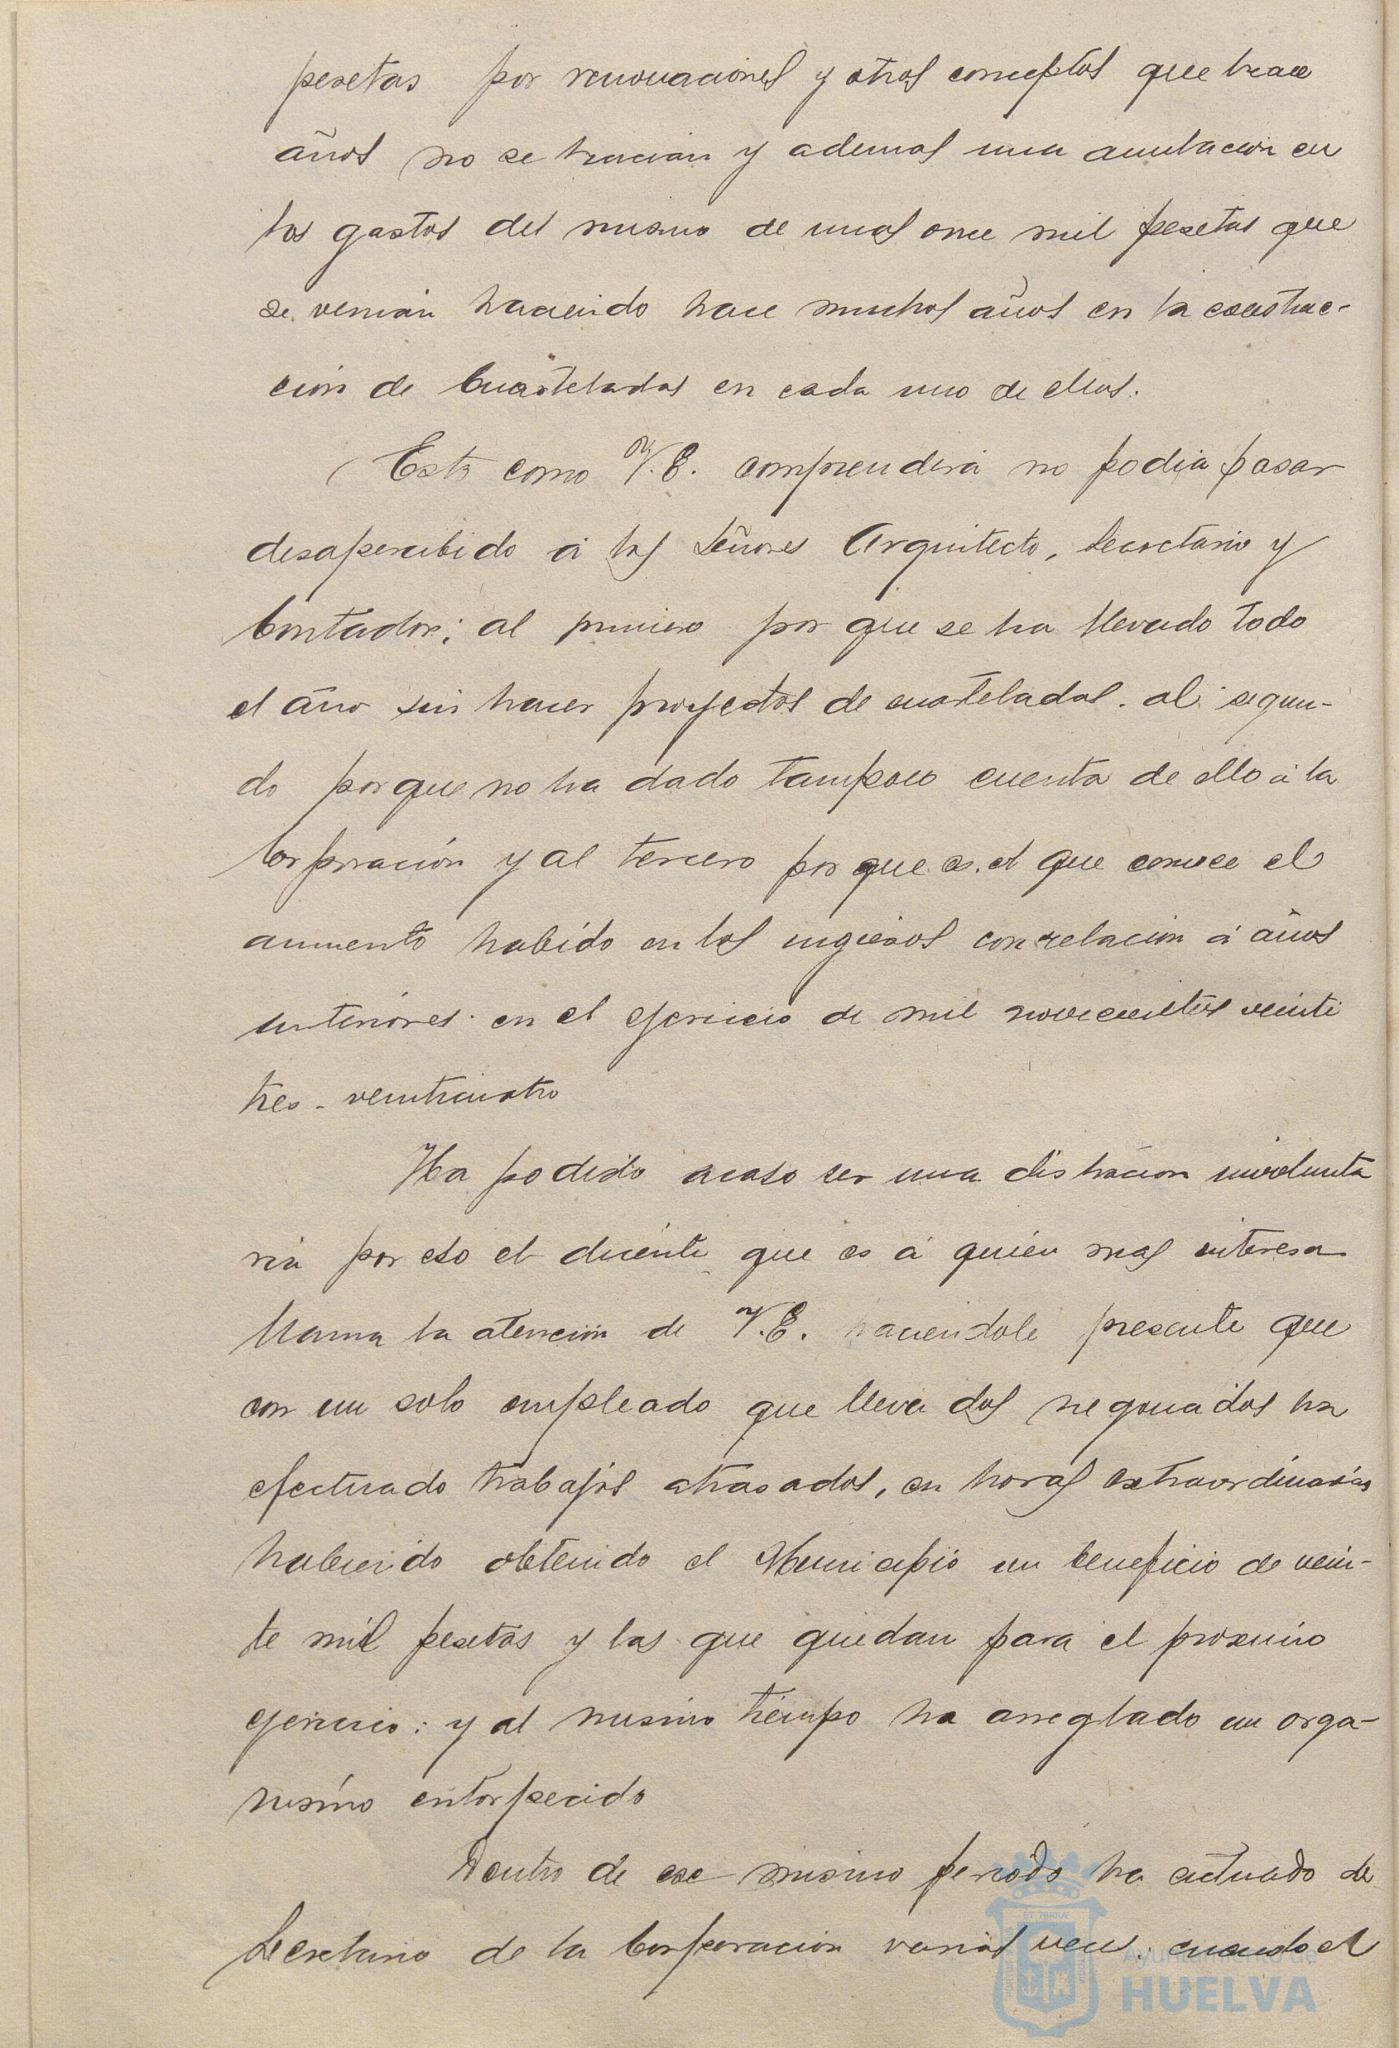 pesetas por renovaciones y otros conceptos que hace
años no se hacian y ademas una anulacion en
los gastos del mismo de unas once mil pesetas que
se venian haciendo hace muchos años en la construc-
ción de Cuarteladas en cada uno de ellos.
Esto como V.E. comprenderá no podia pasar
desapercibido á los Señores Arquitecto, Secretario y
Contador; al primero por que se ha llevado todo
el año sin hacer proyectos de cuarteladas. al segun-
do porque no ha dado tampoco cuenta de ello á la
Corporación y al tercero por que es el que conoce el
aumento habido en los ingresos con relacion á años
anteriores en el ejercicio de mil novecientos veinti
tres - veinticuatro
Ha podido acaso ser una distracion involunta
ria por eso el dicente que es á quien mas interesa
llama la atención de V.E. haciendole presente que
con un solo empleado que lleva dos negociados ha
efectuado trabajos atrasados, en horas extraordinarias
habiendo obtenido el Municipio un beneficio de vein-
te mil pesetas y las que quedan para el proximo
ejercicio: y al mismo tiempo ha arreglado un orga-
nismo entorpecido
Dentro de ese mismo periodo ha actuado de
Secretario de la Corporacion varias vece. cuando el
Ayuntamiento de
HUELVA